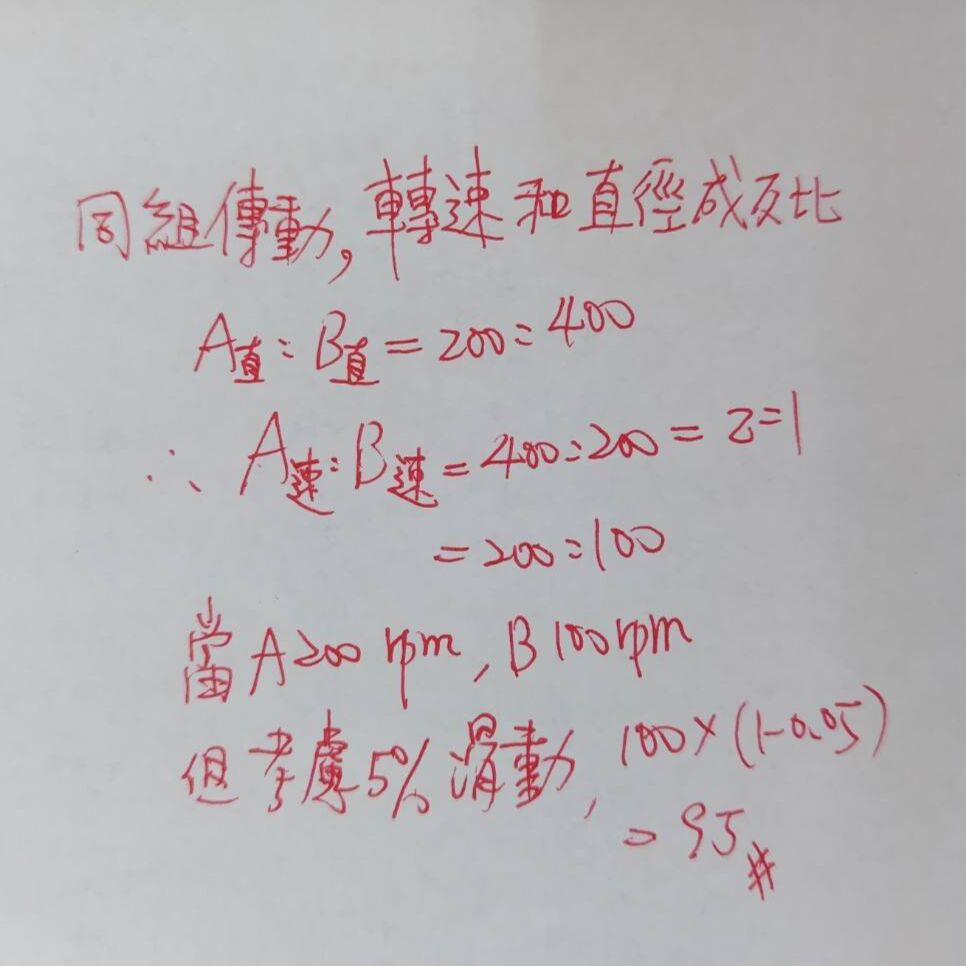 同組傳動，轉速和直徑成反比
A直：B直＝200：400
∴ A速：B速＝400：200＝2：1
＝200：100
當A200 rpm，B100rpm
但考慮5%滑動，100×(1-0.05)
＝95#